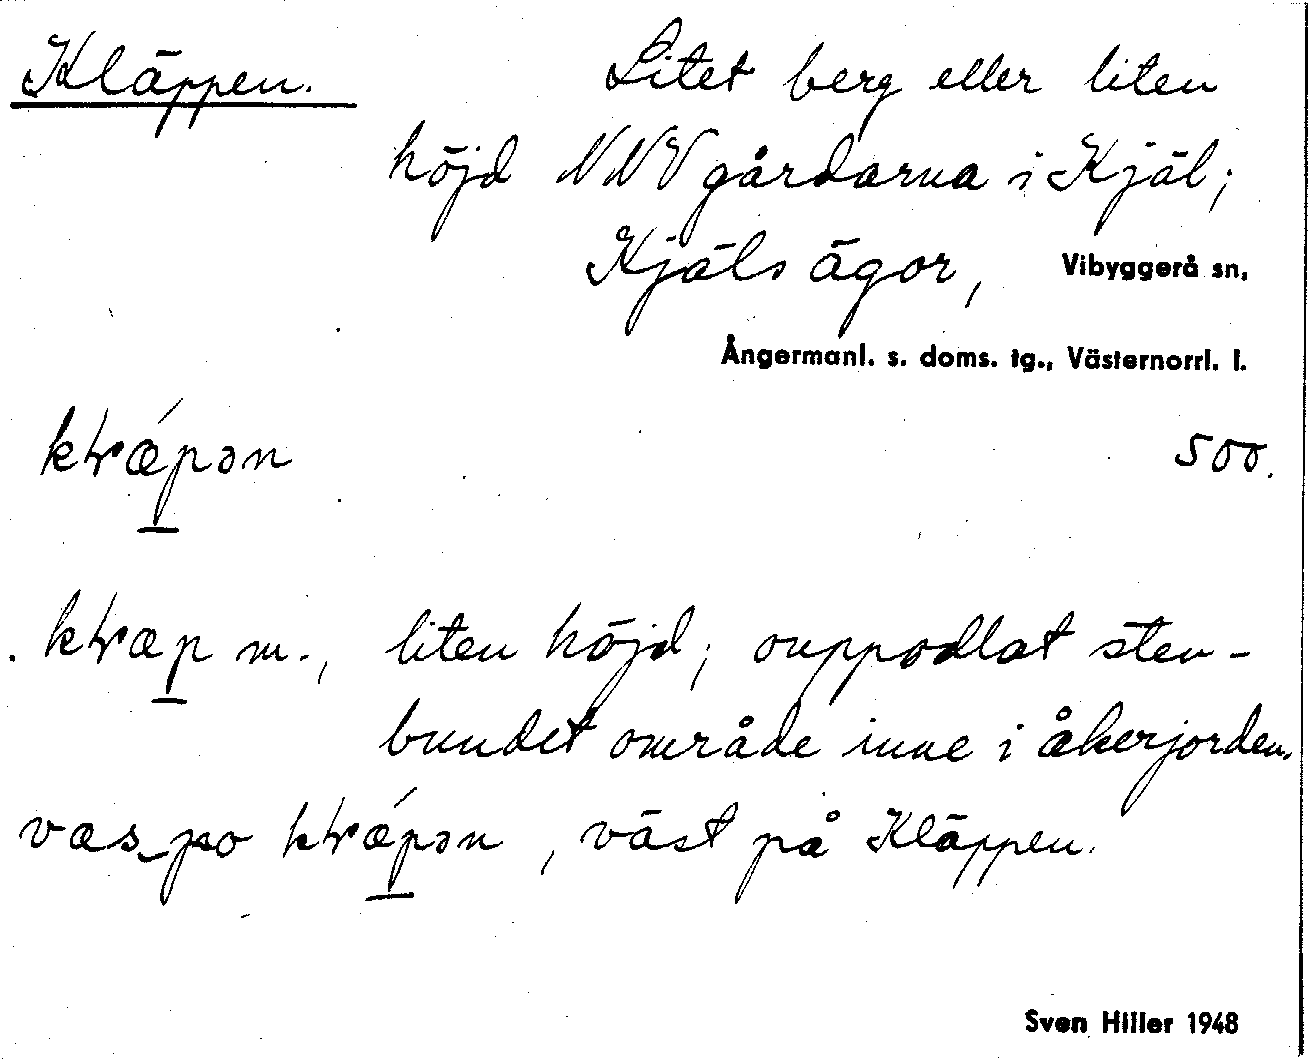 Kläppen. Litet berg eller liten
höjd NNV gårdarna i Kjäl;
Kjäls ägor, Vibyggerå sn,
Ångermanl. s. doms. tg., Västernorrl. l.
500.
m., liten höjd; ouppodlat sten-
bundet område inne i åkerjorden.
, väst på Kläppen.
Sven Hiller 1948